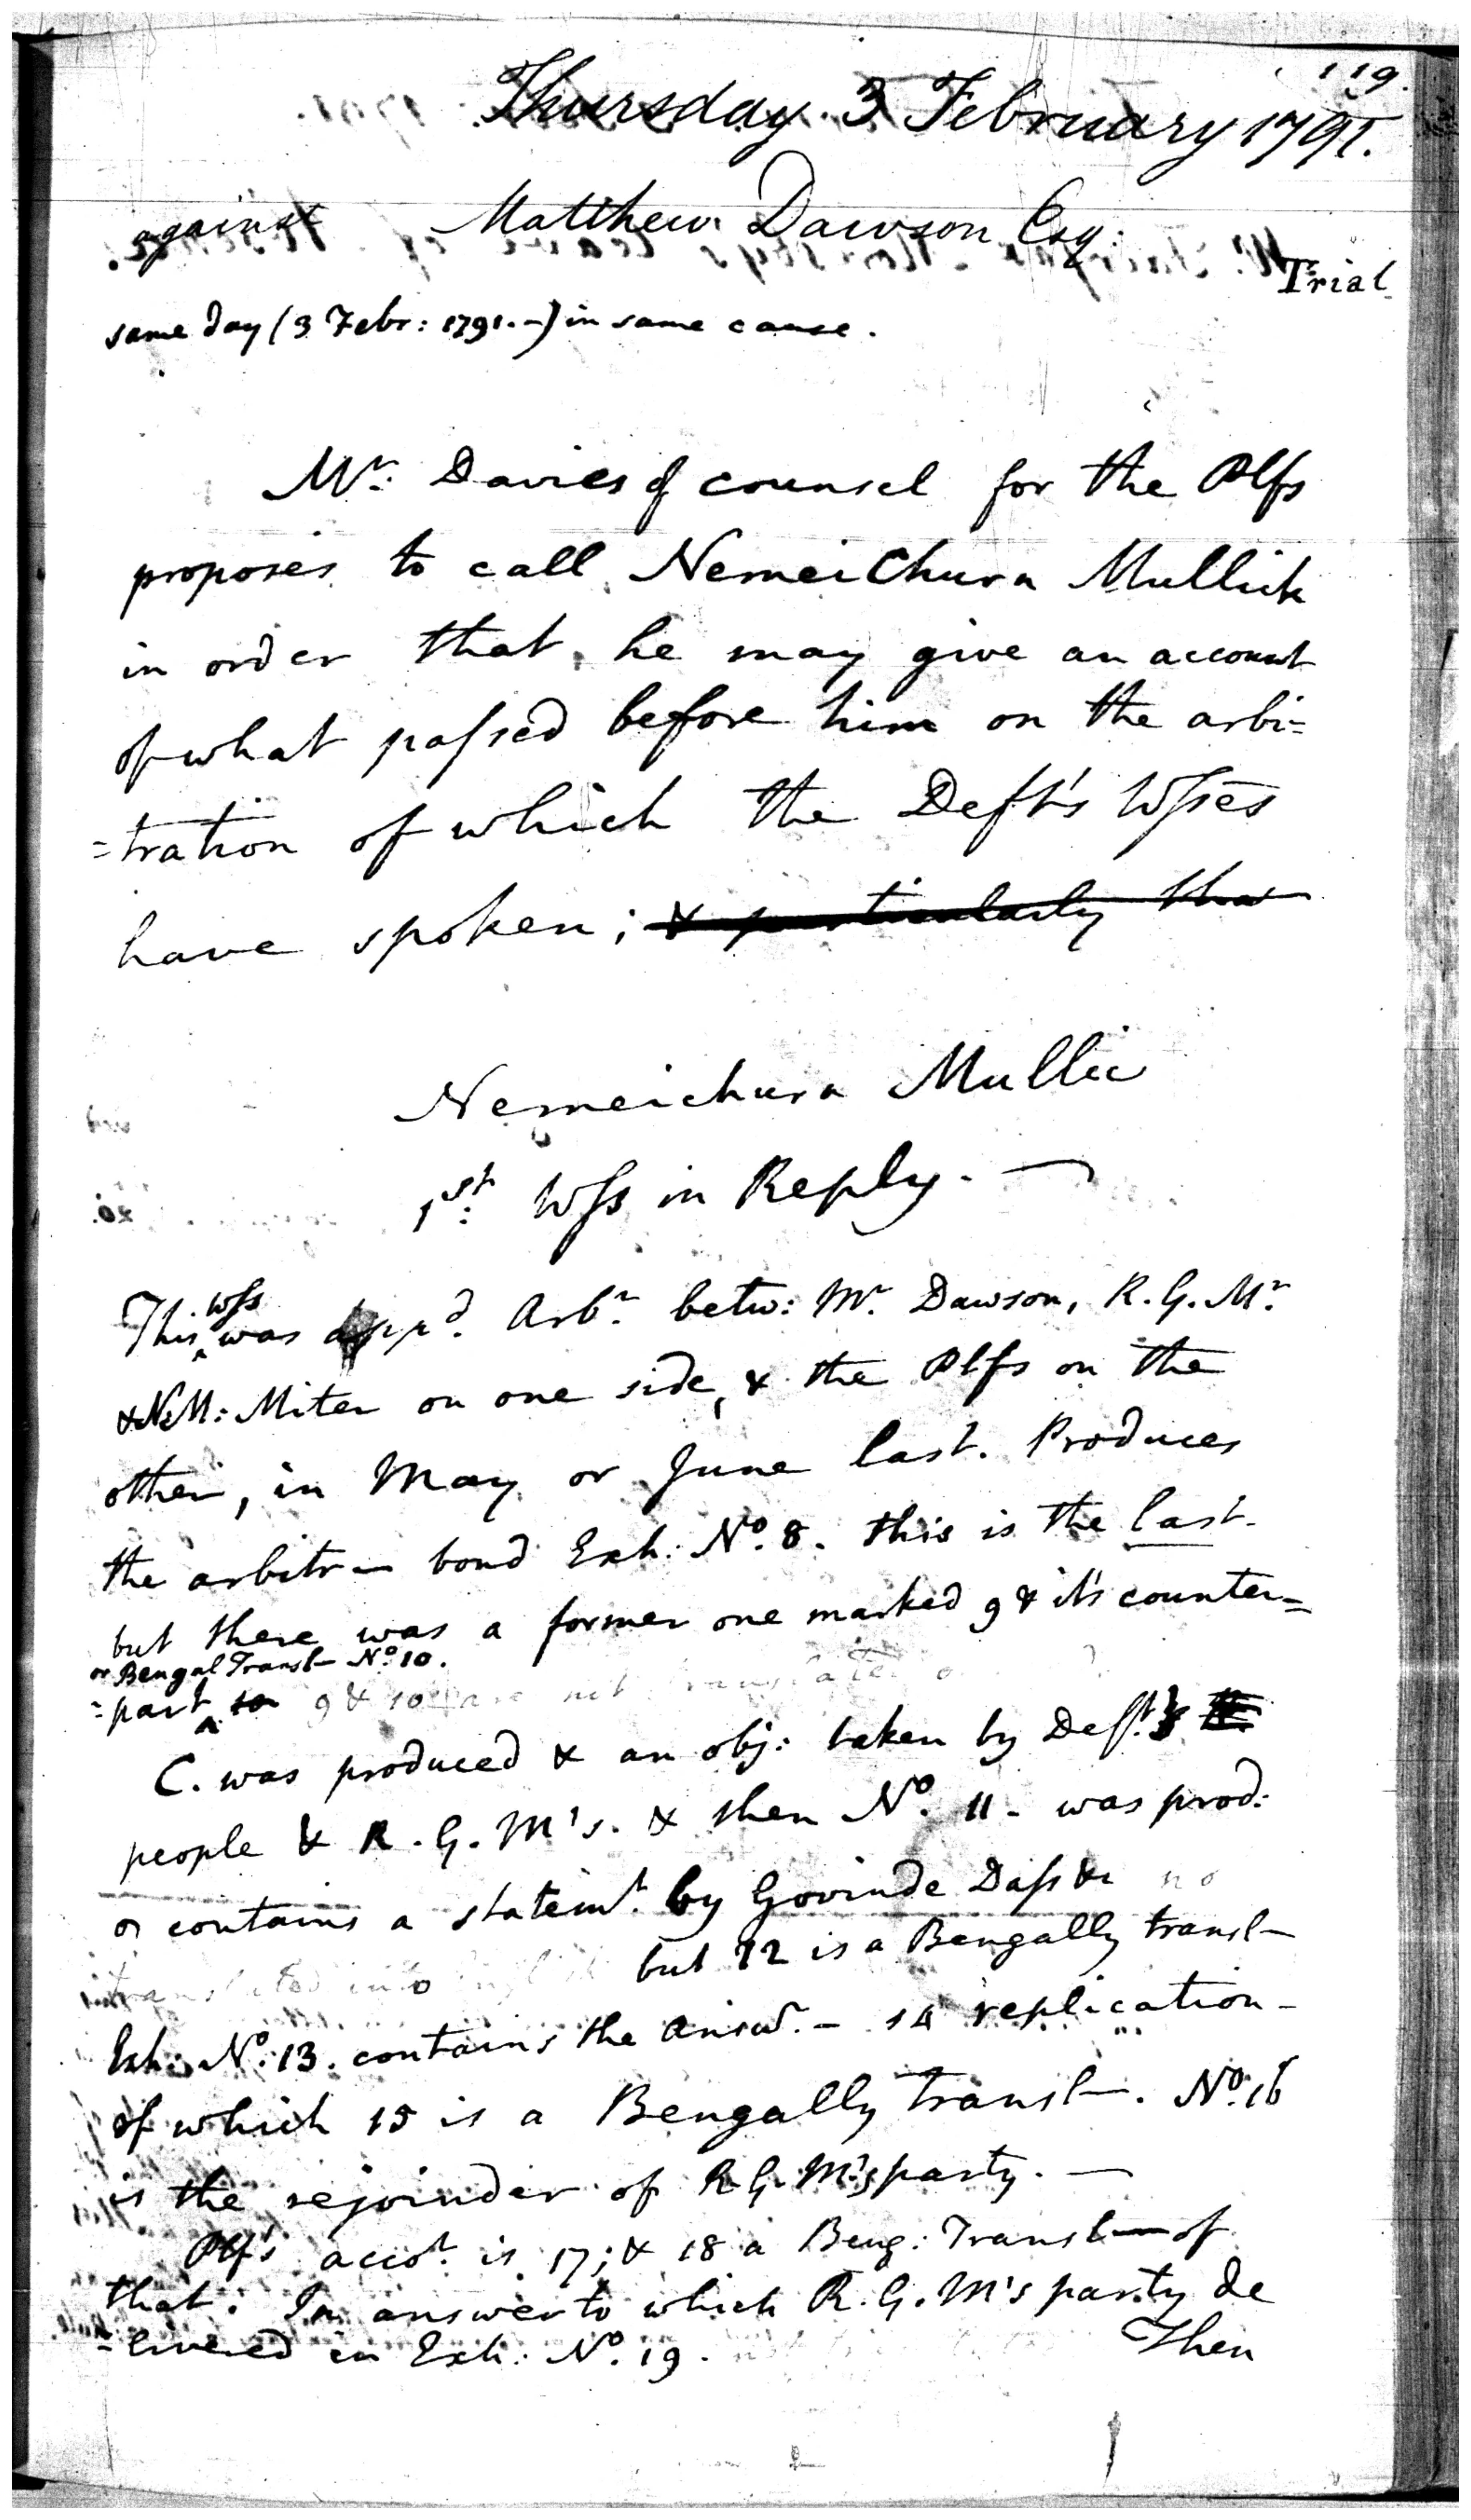 119.
Thursday 3 February 1791.
against Matthew Dawson Esq:
Trial
same day (3 Febr: 1791.-) in same cause.
Mr. Davies of counsel for the Plfs
proposes to call Nemeichurn Mullick
in order that he may give an account
of what passed before him on the arbi=
=tration of which the Deft's Wsses
have spoken; & particularly that
Nemeichurn Mullic
1st: Wss in Reply. —
This wss was appd. Arbr. betw: Mr. Dawson, R. G. Mr.
& N. M: Miter on one side, & the Plfs on the
other, in May or June last. Produces
the arbitr— bond Exh: No. 8. this is the last-
but there was a former one marked 9 & it's counter=
or Bengal Transl— No. 10.
=part 10 9 & 10 are not translated
C. was produced & an obj: taken by Deft's
people & R. G. M's. & then No. 11- was prod:
contains a statemt. by Govinde Dass &c no
translated into but 12 is a Bengally transl—
Exh: No. 13. contains the Answr.- 14 replication-
of which 15 is a Bengally transl—. No. 16
is the rejoinder of R. G. M's party. —
Plf's accot. is 17; & 18 a Beng: Transl— of
that: In answer to which R. G. M's party de
=livered in Exh: No. 19.
Then